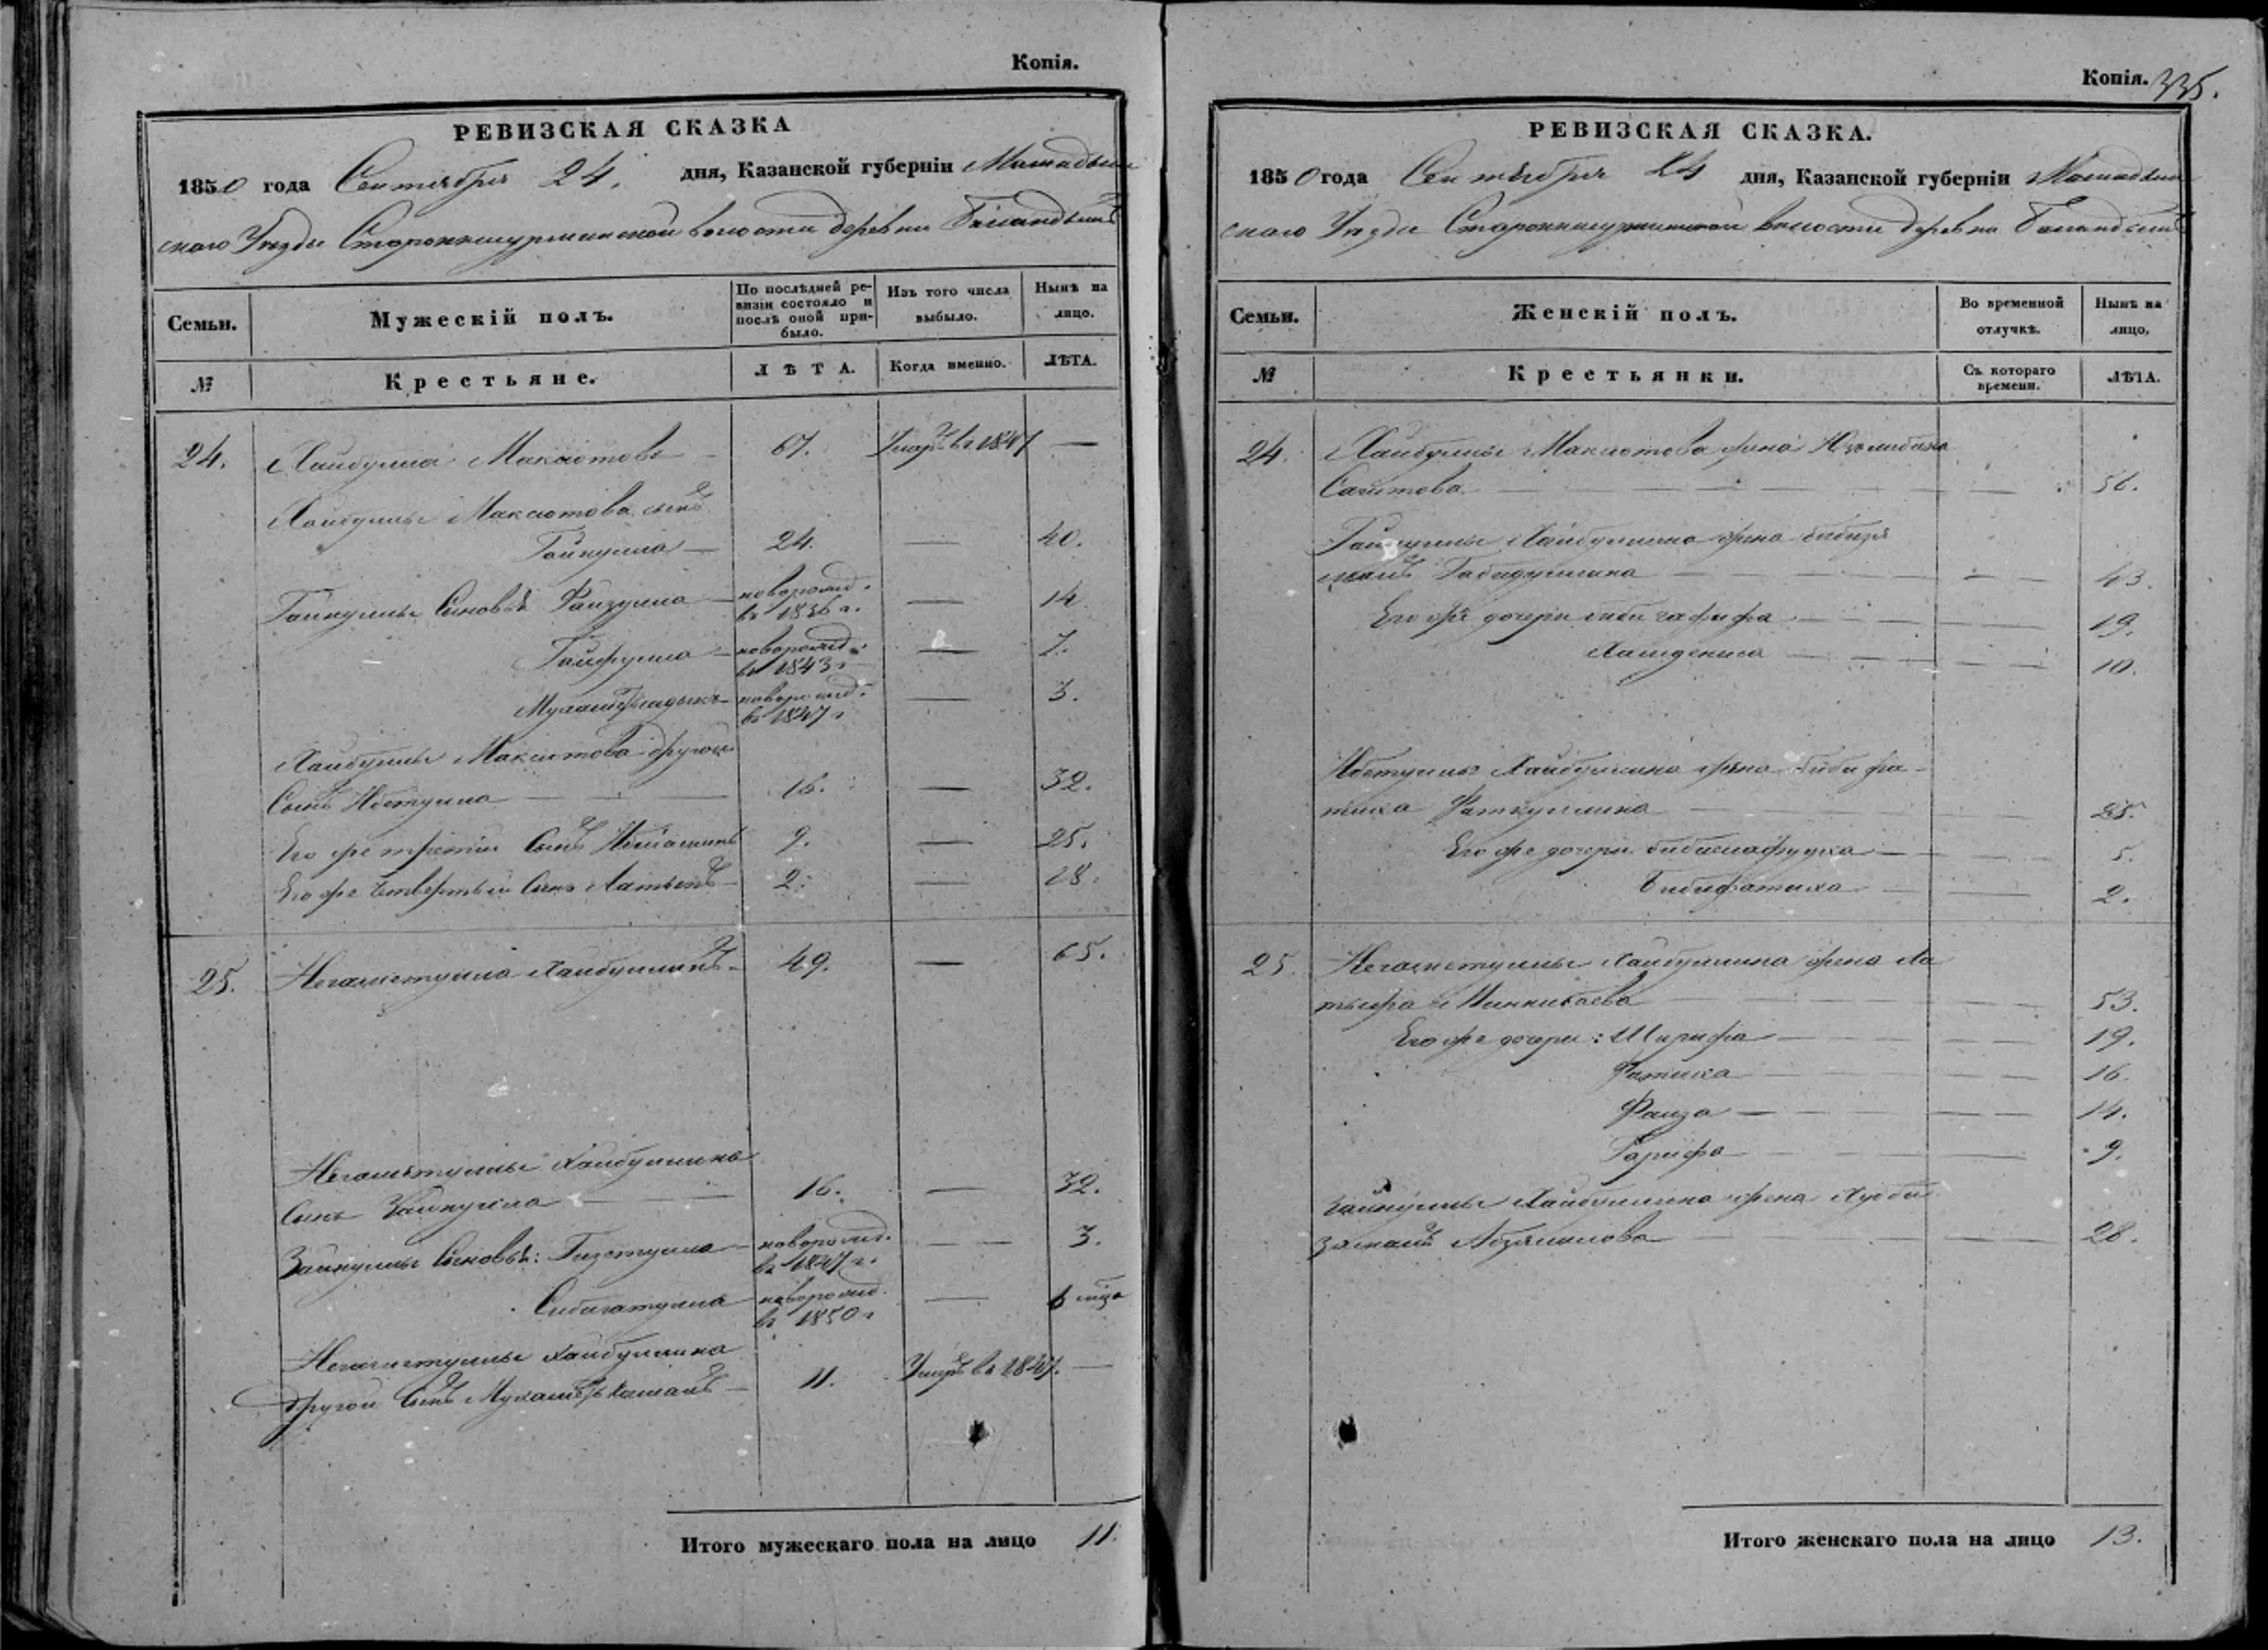 Копія.
РЕВИЗСКАЯ СКАЗКА
1850 года Сентября 24. дня, Казанской губерніи Мамадыш
скаго Уезда волости деревни
Семьи.
Мужескій полъ.
По послѣдней ре-
визіи состояло и
послѣ оной при-
было.
Изъ того числа
выбыло.
Нынѣ на
лицо.
№
Крестьяне.
ЛѢТА.
Когда именно.
ЛѢТА.
24. Хайбулла Максютовъ 67. Умеръ въ 1847 —
Хайбуллы Максютова сынъ
Гайнулла — 24. — 40.
Гайнуллы Сыновья Фаизулла — новорожд.
въ 1836 г. — 14
Гайфулла — новорожд.
въ 1843 г — 7.
новорожд.
въ 1847 г — 3.
Хайбуллы Максютова другой
Сынъ Ибетулла — 16. — 32.
Его же третій Сынъ 9. — 25.
Его же четвертый Сынъ Латыпъ — 2. — 18.
25. Негаметулла Хайбуллинъ — 49. — 65.
Негаметуллы Хайбуллина
Сынъ Зайнулла — 16. — 32.
Зайнуллы Сыновья: Гизетулла — новорожд.
въ 1847 г. — 3.
Сибагатулла новорожд.
въ 1850 г — 6 мѣца
Негаметуллы Хайбуллина
другой Сынъ — 11. Умеръ въ 1847. —
Итого мужескаго пола на лицо 11.
Копія. 335.
РЕВИЗСКАЯ СКАЗКА.
1850 года Сентября 24 дня, Казанской губерніи Мамадыш
скаго Уезда волости деревни
Семьи.
Женскій полъ.
Во временной
отлучкѣ.
Нынѣ на
лицо,
№
Крестьянки.
Съ котораго
времени.
ЛѢТА.
24. Хайбуллы Максютова жена
Сагитова — 56.
Гайнуллы Хайбуллина жена Бибизя
малъ Габидуллина — 43.
Его же дочери Биби гафифа — 19.
— 10.
Ибетуллы Хайбуллина жена Биби фа-
тиха Фаткуллина —
Его же дочери — 5.
Бибифатиха — 2.
25. Негаметуллы Хайбуллина жена Ла
тыфа Миннибаева — 53.
Его же дочери: Шарифа — 19.
Фатиха — 16.
Фаиза — 14.
Гарифа — 9.
Зайнуллы Хайбуллина жена Хубби
замалъ — 28.
Итого женскаго пола на лицо 13.